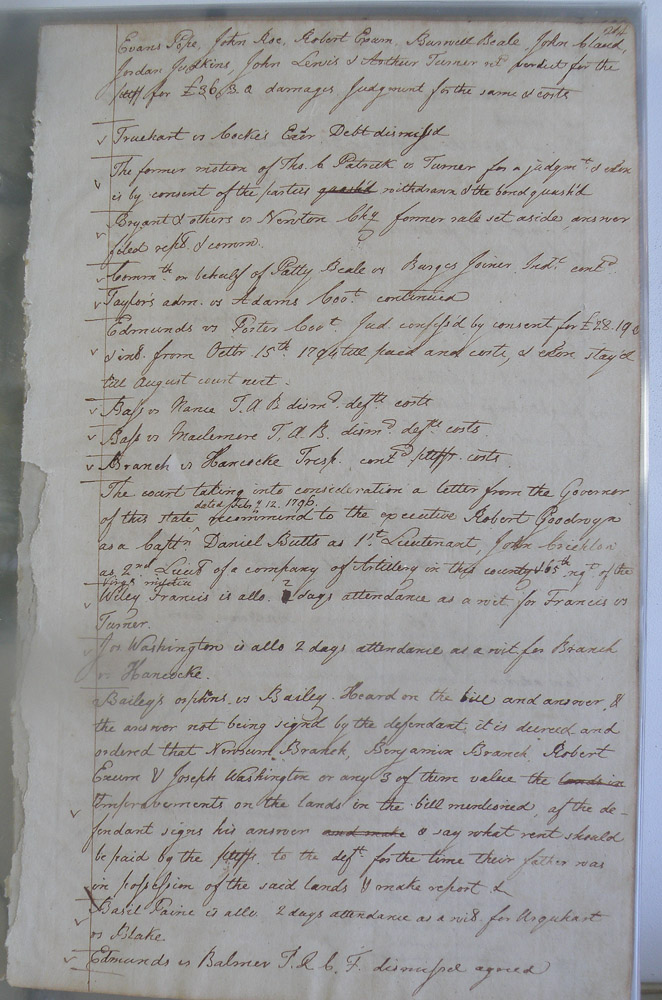 214
Evans Pope, John Roe, Robert Exum, Burwell Beale, John Claud,
Jordan Judkins, John Lewis & Arthur Turner retd verdict for the
pltff for £36.3.0 damages Judgment for the same & costs
Truehart vs Cocke's Exor Debt dismissd
The former motion of Ths. C Patrick vs Turner for a judgmt & exon
is by consent of the parties quash'd withdrawn & the bond quash'd
Bryant & others vs Newton Chy former rule set aside answer
filed repn & comm.
Commth on behalf of Patty Beale vs Burges Joiner Indt contd
Taylor's adm. vs Adams Covt continued
Edmunds vs Porter Covt Jud. confess'd by consent for £28.19.
& int from Octbr 15th 1794 till paid and costs, & exon stay'd
till August court next.
Bass vs Nance T.A.B dismd defts costs
Bass vs Maclemore T.A.B. dismd defts costs
Branch vs Hancocke Tresp. contd pltffs costs
The court taking into consideration a letter from the Governor
dated Feby 12. 1796.
of this state recommend to the executive Robert Goodwyn
as a Captn Daniel Butts as 1st Lieutenant, John Crichlow
as 2nd Lieut of a company of Artillery in this county & 65th regt of the
Virga militia
Wiley Francis is allo. 2 days attendance as a wit for Francis vs
Turner.
Jos Washington is allo 2 days attendance as a wit for Branch
vs Hancocke.
Bailey's orphans vs Bailey. Heard on the bill and answer, &
the answer not being signd by the defendant, it is decreed and
ordered that Newsum Branch, Benjamin Branch, Robert
Exum & Joseph Washington or any 3 of them value the lands in
improvements on the lands in the bill mentioned, after the de-
fendant signs his answer and make & say what rent should
be paid by the pltffs. to the deft for the time their father was
in possession of the said lands & make report &
Basil Paine is allo. 2 days attendance as a wit for Urquhart
vs Blake.
Edmunds vs Balmer T.& C. F. dismissed agreed